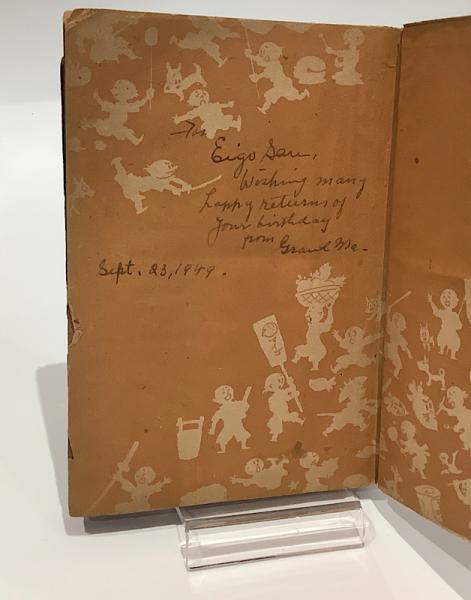 To
Eigo San,
Wishing many
happy returns of
your birthday
from Grand Ma-
Sept. 23, 1949.